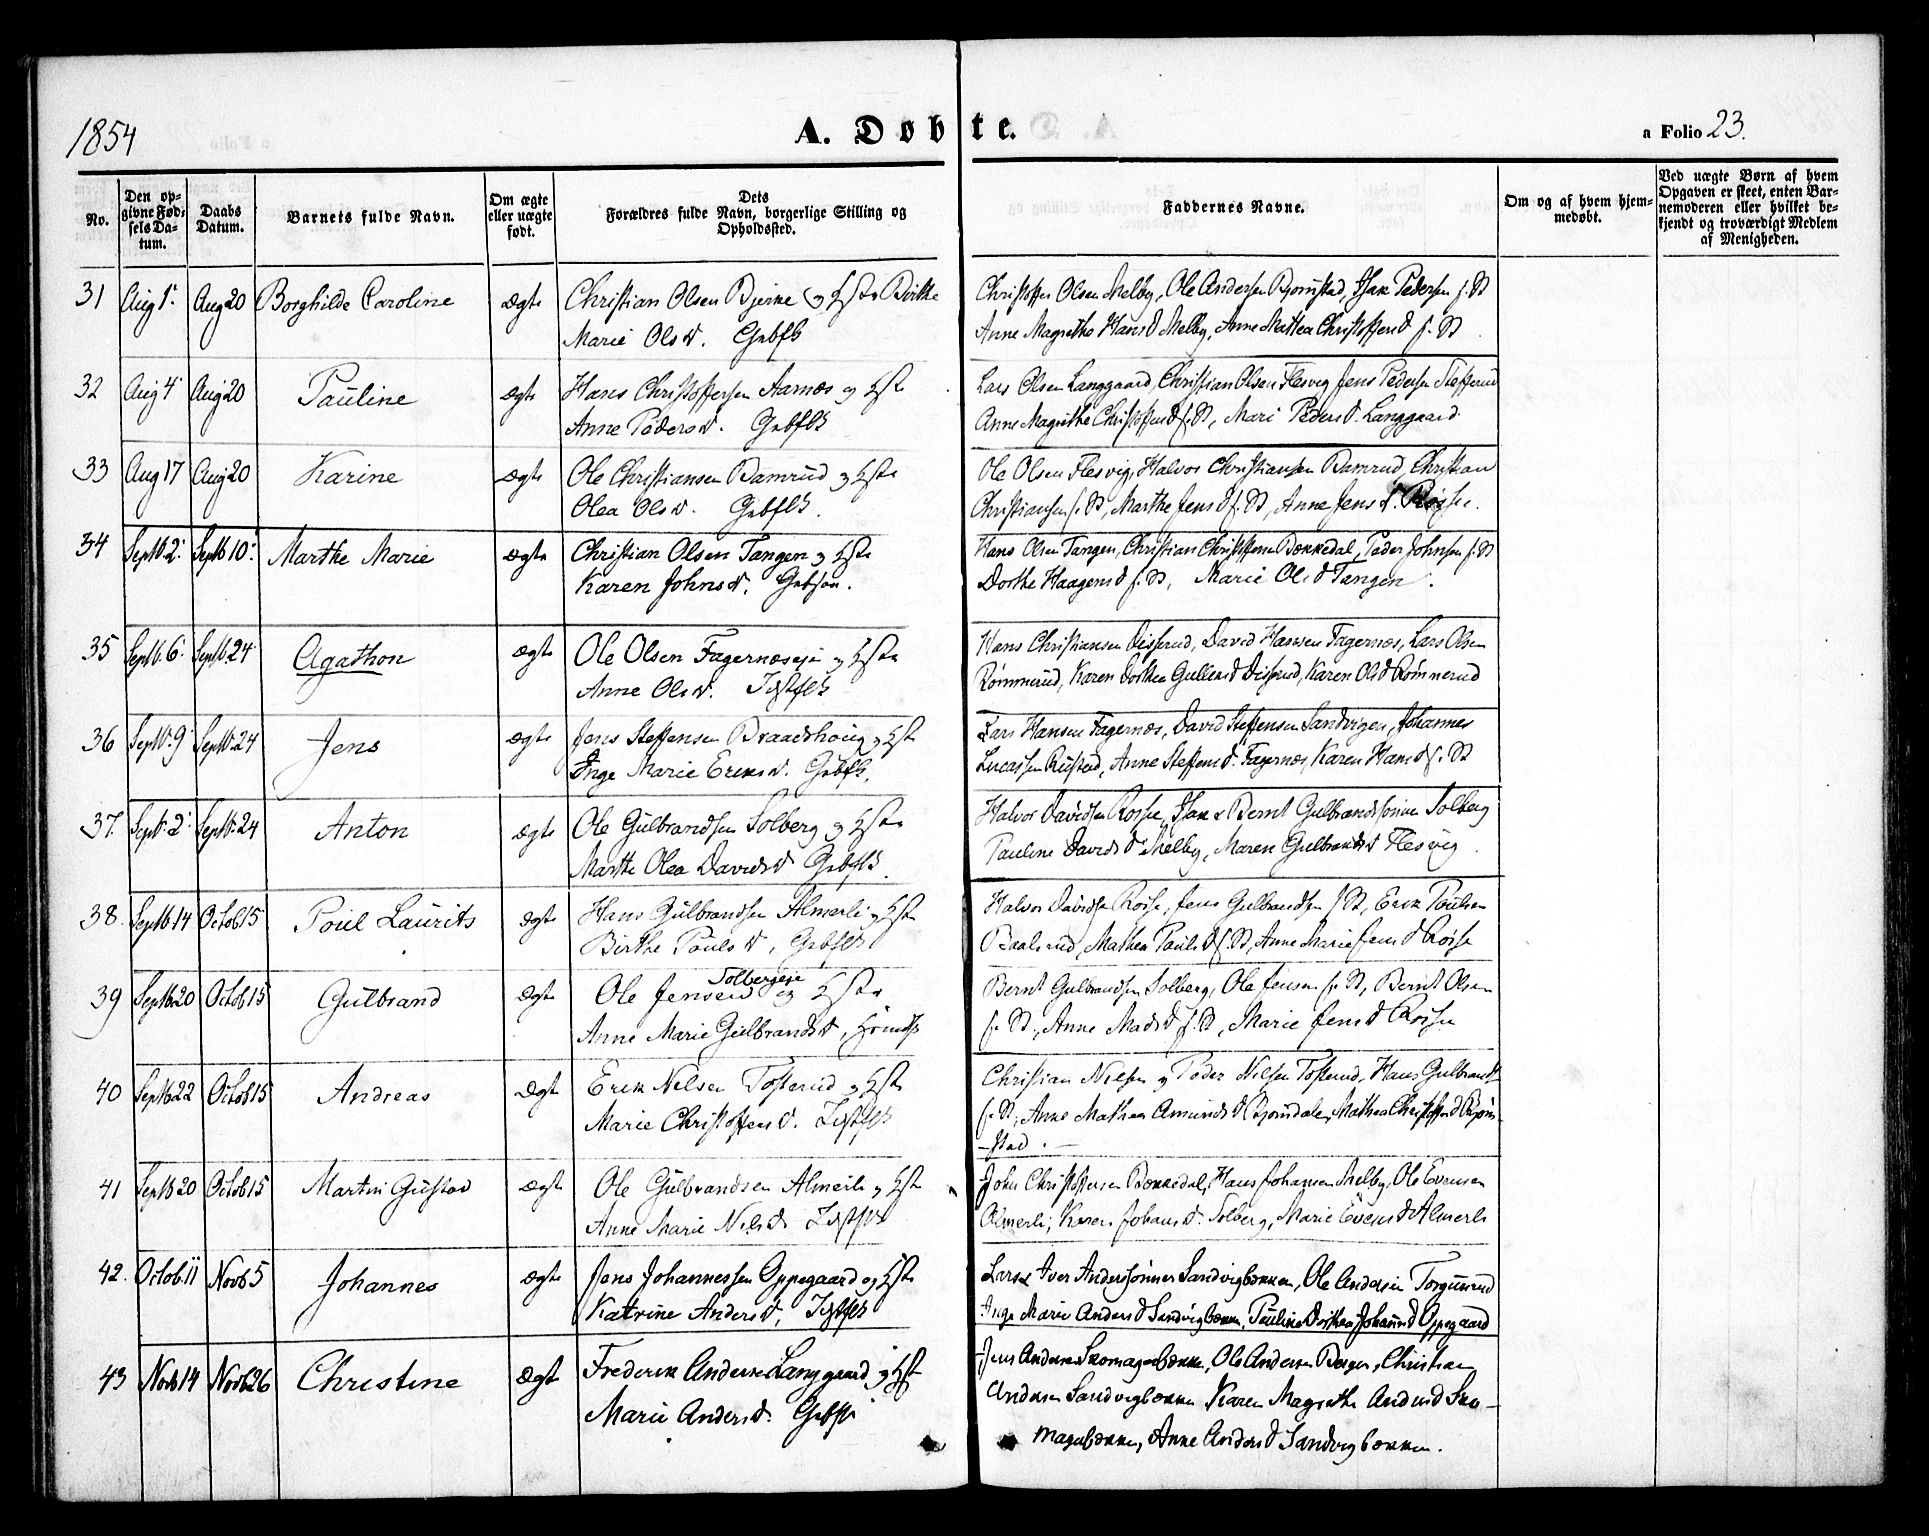 1854
A. Døbte.
a Folio 23.
No.
Den op-
givne Fød-
sels Da-
tum.
Daabs
Datum.
Barnets fulde Navn.
Om ægte
eller uægte
født.
Dets
Forældres fulde Navn, borgerlige Stilling og
Opholdssted.
Faddernes Navne.
Om og af hvem hjem-
medøbt.
Ved uægte Børn af hvem
Opgaven er skeet, enten Bar-
nemoderen eller hvilket be-
kjendt og troværdigt Medlem
af Menigheden.
31 Aug 1. Aug 20 Borghilde Caroline ægte Christian Olsen Bjerke og Hstr Birthe
Marie Olsd. Gbflk
Christoffer Olsen Melby, Ole Andersen Bjørnstad, Isak Pedersen f. St
Anne Magrethe Hansd Melby, Anne Mathea Christoffersd f. St
32 Aug 4 Aug 20 Pauline ægte Hans Christoffersen Aamos og Hst
Anne Pedersd. Gbflk
Lars Olsen Langgaard, Christian Olsen Flesvig Jens Pedersen Stefferud
Anne Magrethe Christoffersd f. St, Mari Pedersd. Langgaard.
33 Aug 17 Aug 20 Karine ægte Ole Christiansen Bamrud og Hstr
Olea Olsd. Gbflk.
Ole Olsen Flesvig, Halvor Christiansen Bamrud, Christian
Christiansen f. St, Marthe Jensd f. St, Anne Jensd.
34 Septb 2. Septb 10. Marthe Marie ægte Christian Olsen Tangen og Hstr
Karen Johnsd.
Hans Olsen Tangen, Christian Christoffersen Bækkedal, Peder Johnsen f. St
Dorthe Haagensd f. St, Marie Olsd Tangen.
35 Septb. 6. Septb. 24 Agathon ægte Ole Olsen Fagernæseje og Hstr
Anne Olsd.
Hans Christiansen Diserud, David Hansen Fagernæs, Lars Olsen
Rømmerud, Karen Dorthea Gullersd Diserud, Karen Olsd Rømmerud
36 Septb. 9 Septb. 24 Jens ægte Jens Steffensen Braadshoug og Hst
Inge Marie Eriksd. Gbflk.
Lars Hansen Fagernæs, David Steffensen Sandvigen, Johannes
Lucassen Rustad, Anne Steffensd. Fagernæs, Karen Hansd f. St
37. Septb. 2. Septb. 24 Anton ægte Ole Gulbrandsen Solberg og Hstr
Marthe Olea Davidsd Gbflk.
Halvor Davidsen Rosse, Isak & Bernt Gulbrandsønner Solberg
Pauline Davidsd Melby, Maren Gulbrandsd Flesvig.
38. Septb 14 Octob 15 Poul Laurits ægte Hans Gulbrandsen Almerli og Hstr
Birthe Poulsd, Gbflk
Halvor Davidsen Rosse, Jens Gulbrandsen f. St, Erik Poulsen
Baalerud, Mathea Paulsd f. St, Anne Marie Jensd Rosse
39 Septb 20 Octob 15 Gulbrand ægte Ole Jensen Solbergeje og Hstr
Anne Marie Gulbrandsd,
Bernt Gulbrandsen Solberg, Ole Jensen f. St, Bernt Olsen
f. St., Anne Madsd f. St, Marie Jensd Rosse
40 Septb 22 Octob 15 Andreas ægte Erik Nilsen Tofterud og Hstr
Marie Christoffersd.
Christian Nilsen og Peder Nilsen Tofterud, Hans Gulbrands
f. St, Anne Mathea Amundsd Bjørndalen, Mathea Christoffersd Bjørn-
-stad.
41 Septb 20 Octob 15 Martin Gustav ægte Ole Gulbrandsen Almerli og Hst
Anne Marie Nilsd
John Christoffersen Bækkedal, Hans Johansen Melby, Ole Evensen
Almerli, Karen Johansd. Solberg, Marie Evensd Almerli
42. Octob. 11 Novb 5 Johannes ægte Jens Johannessen Oppegaard og Hstr
Katrine Andersd,
Lars & Iver Anderssønner Sandvigbækken, Ole Andersen Torgunrud
Inge Marie Andersd Sandvigbækken, Pauline Dorthea Johannesd Oppegaard
43 Novb 14 Novb 26 Christine ægt Frederik Andersen Langgaard og Hstr
Marie Andersd.
Jens Andersen Skomagerbække, Ole Andersen Berger, Christian
Andersen Sandvigbækken Karen Magrethe Andersd Sko-
magerbækken, Anne Andersd Sandvigbækken.